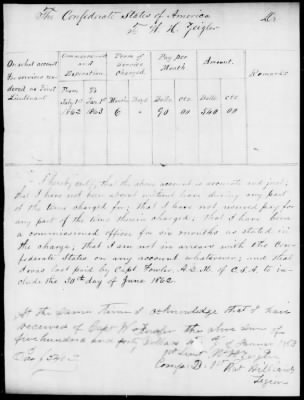 The Confederate States of America
To W. H. Zeigler
On what account
for services rend-
ered as First
Lieutenant
Commencement
and
Expiration
From To
July 1st Jan. 1st
1862 1863
Term of
Service
Charged.
Months Days
6 "
Pay Per
Month
Dolls cts
90 00
Amount.
Dolls cts
540 00
Remarks
I hereby certify that the above account is accurate and just;
that I have not been absent without leave during any part
of the time charged for; that I have not received pay for
any part of the time therein charged; that I have been
a commissioned officer for six months as stated in
the charge; that I am not in arrears with the Con-
federate States on any account whatsoever; and that
I was last paid by Capt Fowler, A.Q.M. of C.S.A. to in-
clude the 30th day of June 1862.
At the same time I acknowledge that I have
received of Capt the above sum of
five hundred and forty dollars of January 1863
1st Lieut
Comp. D. 1st Bat Hilliards
Legion